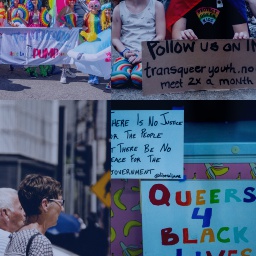 PUMP
FOLLOW US ON IN
transqueer youth.no
meet 2x a month
HERE IS NO JUSTICE
OR THE PEOPLE
T THERE BE NO
EACE FOR THE
GOVERNMENT
QUEERS
4
BLACK
LIVES